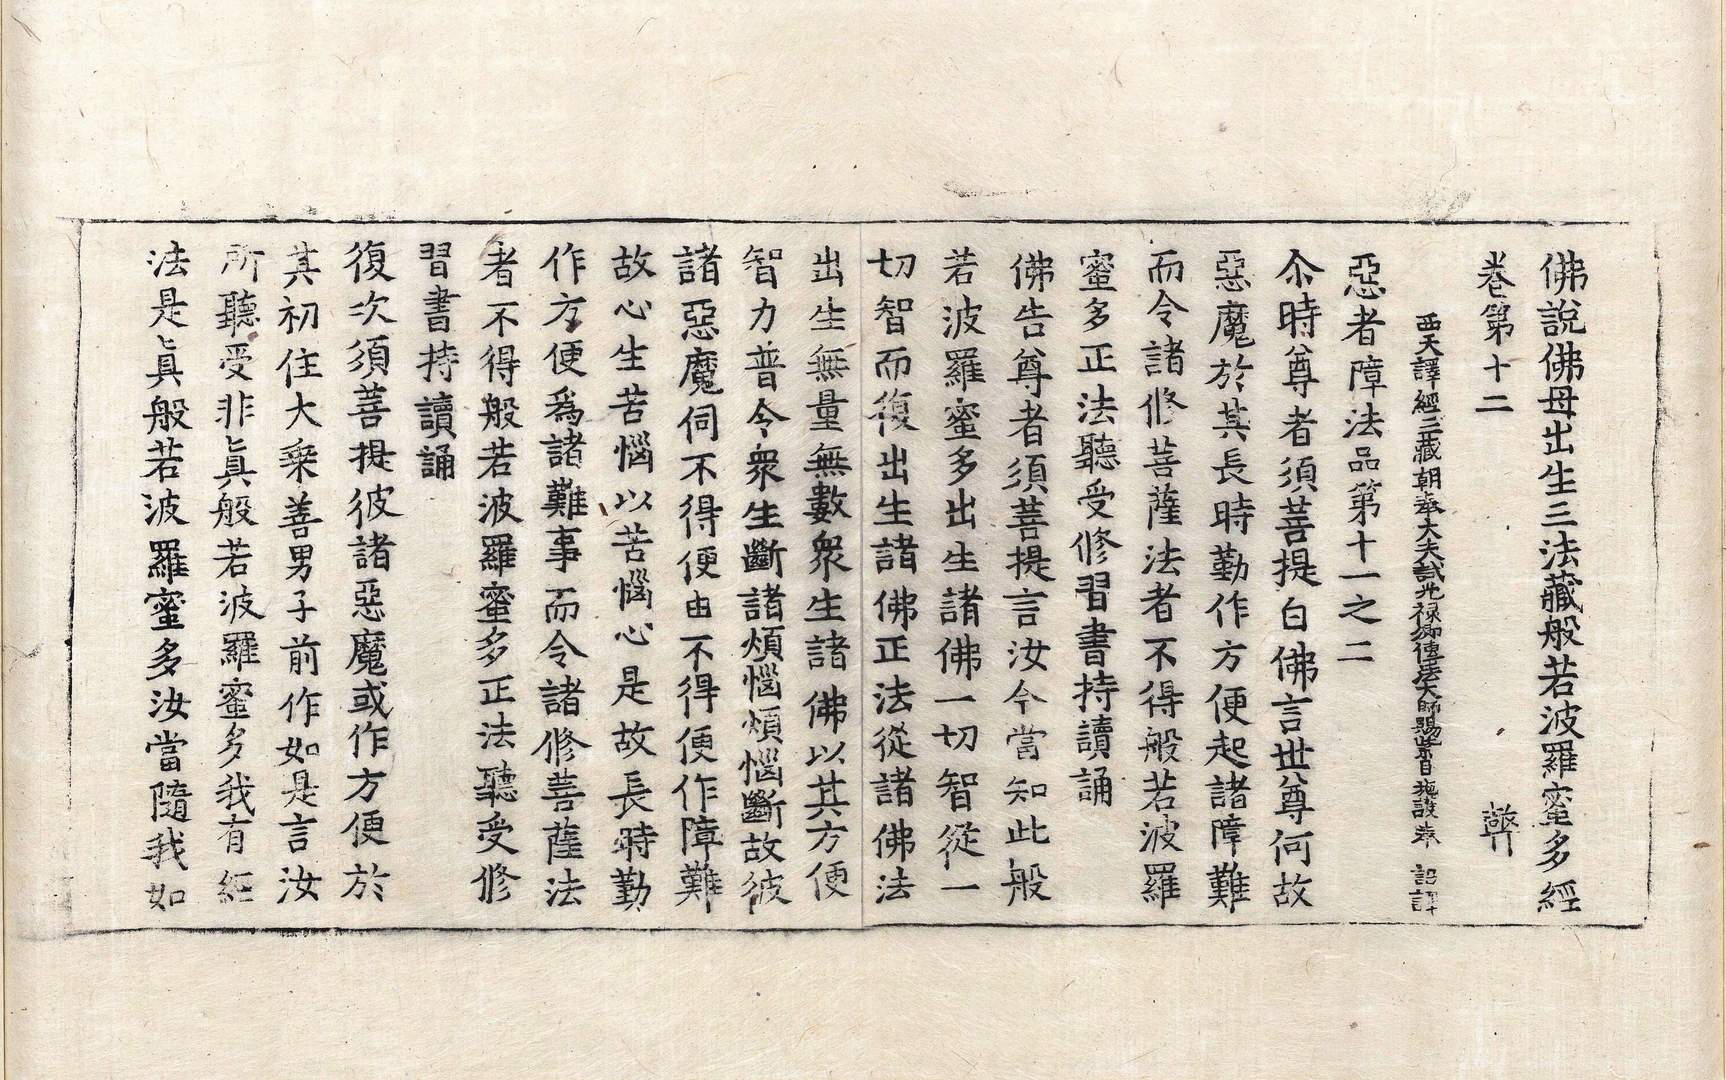 佛說佛母出生三法藏般若波羅蜜多經
卷第十二
西天譯經三藏朝奉大夫試光祿卿傳法大師賜紫臣施護奉 詔譯
惡者障法品第十一之二
尒時尊者須菩提白佛言世尊何故
惡魔於其長時勤作方便起諸障難
而令諸修菩薩法者不得般若波羅
蜜多正法聽受修習書持讀誦
佛告尊者須菩提言汝今當知此般
若波羅蜜多出生諸佛一切智從一
切智而復出生諸佛正法從諸佛法
出生無量無數衆生諸佛以其方便
智力普令衆生斷諸煩惱煩惱斷故彼
諸惡魔伺不得便由不得便作障難
故心生苦惱以苦惱心是故長時勤
作方便爲諸難事而令諸修菩薩法
者不得般若波羅蜜多正法聽受修
習書持讀誦
復次須菩提彼諸惡魔或作方便於
其初住大乘善男子前作如是言汝
所聽受非眞般若波羅蜜多我有經
法是眞般若波羅蜜多汝當隨我如